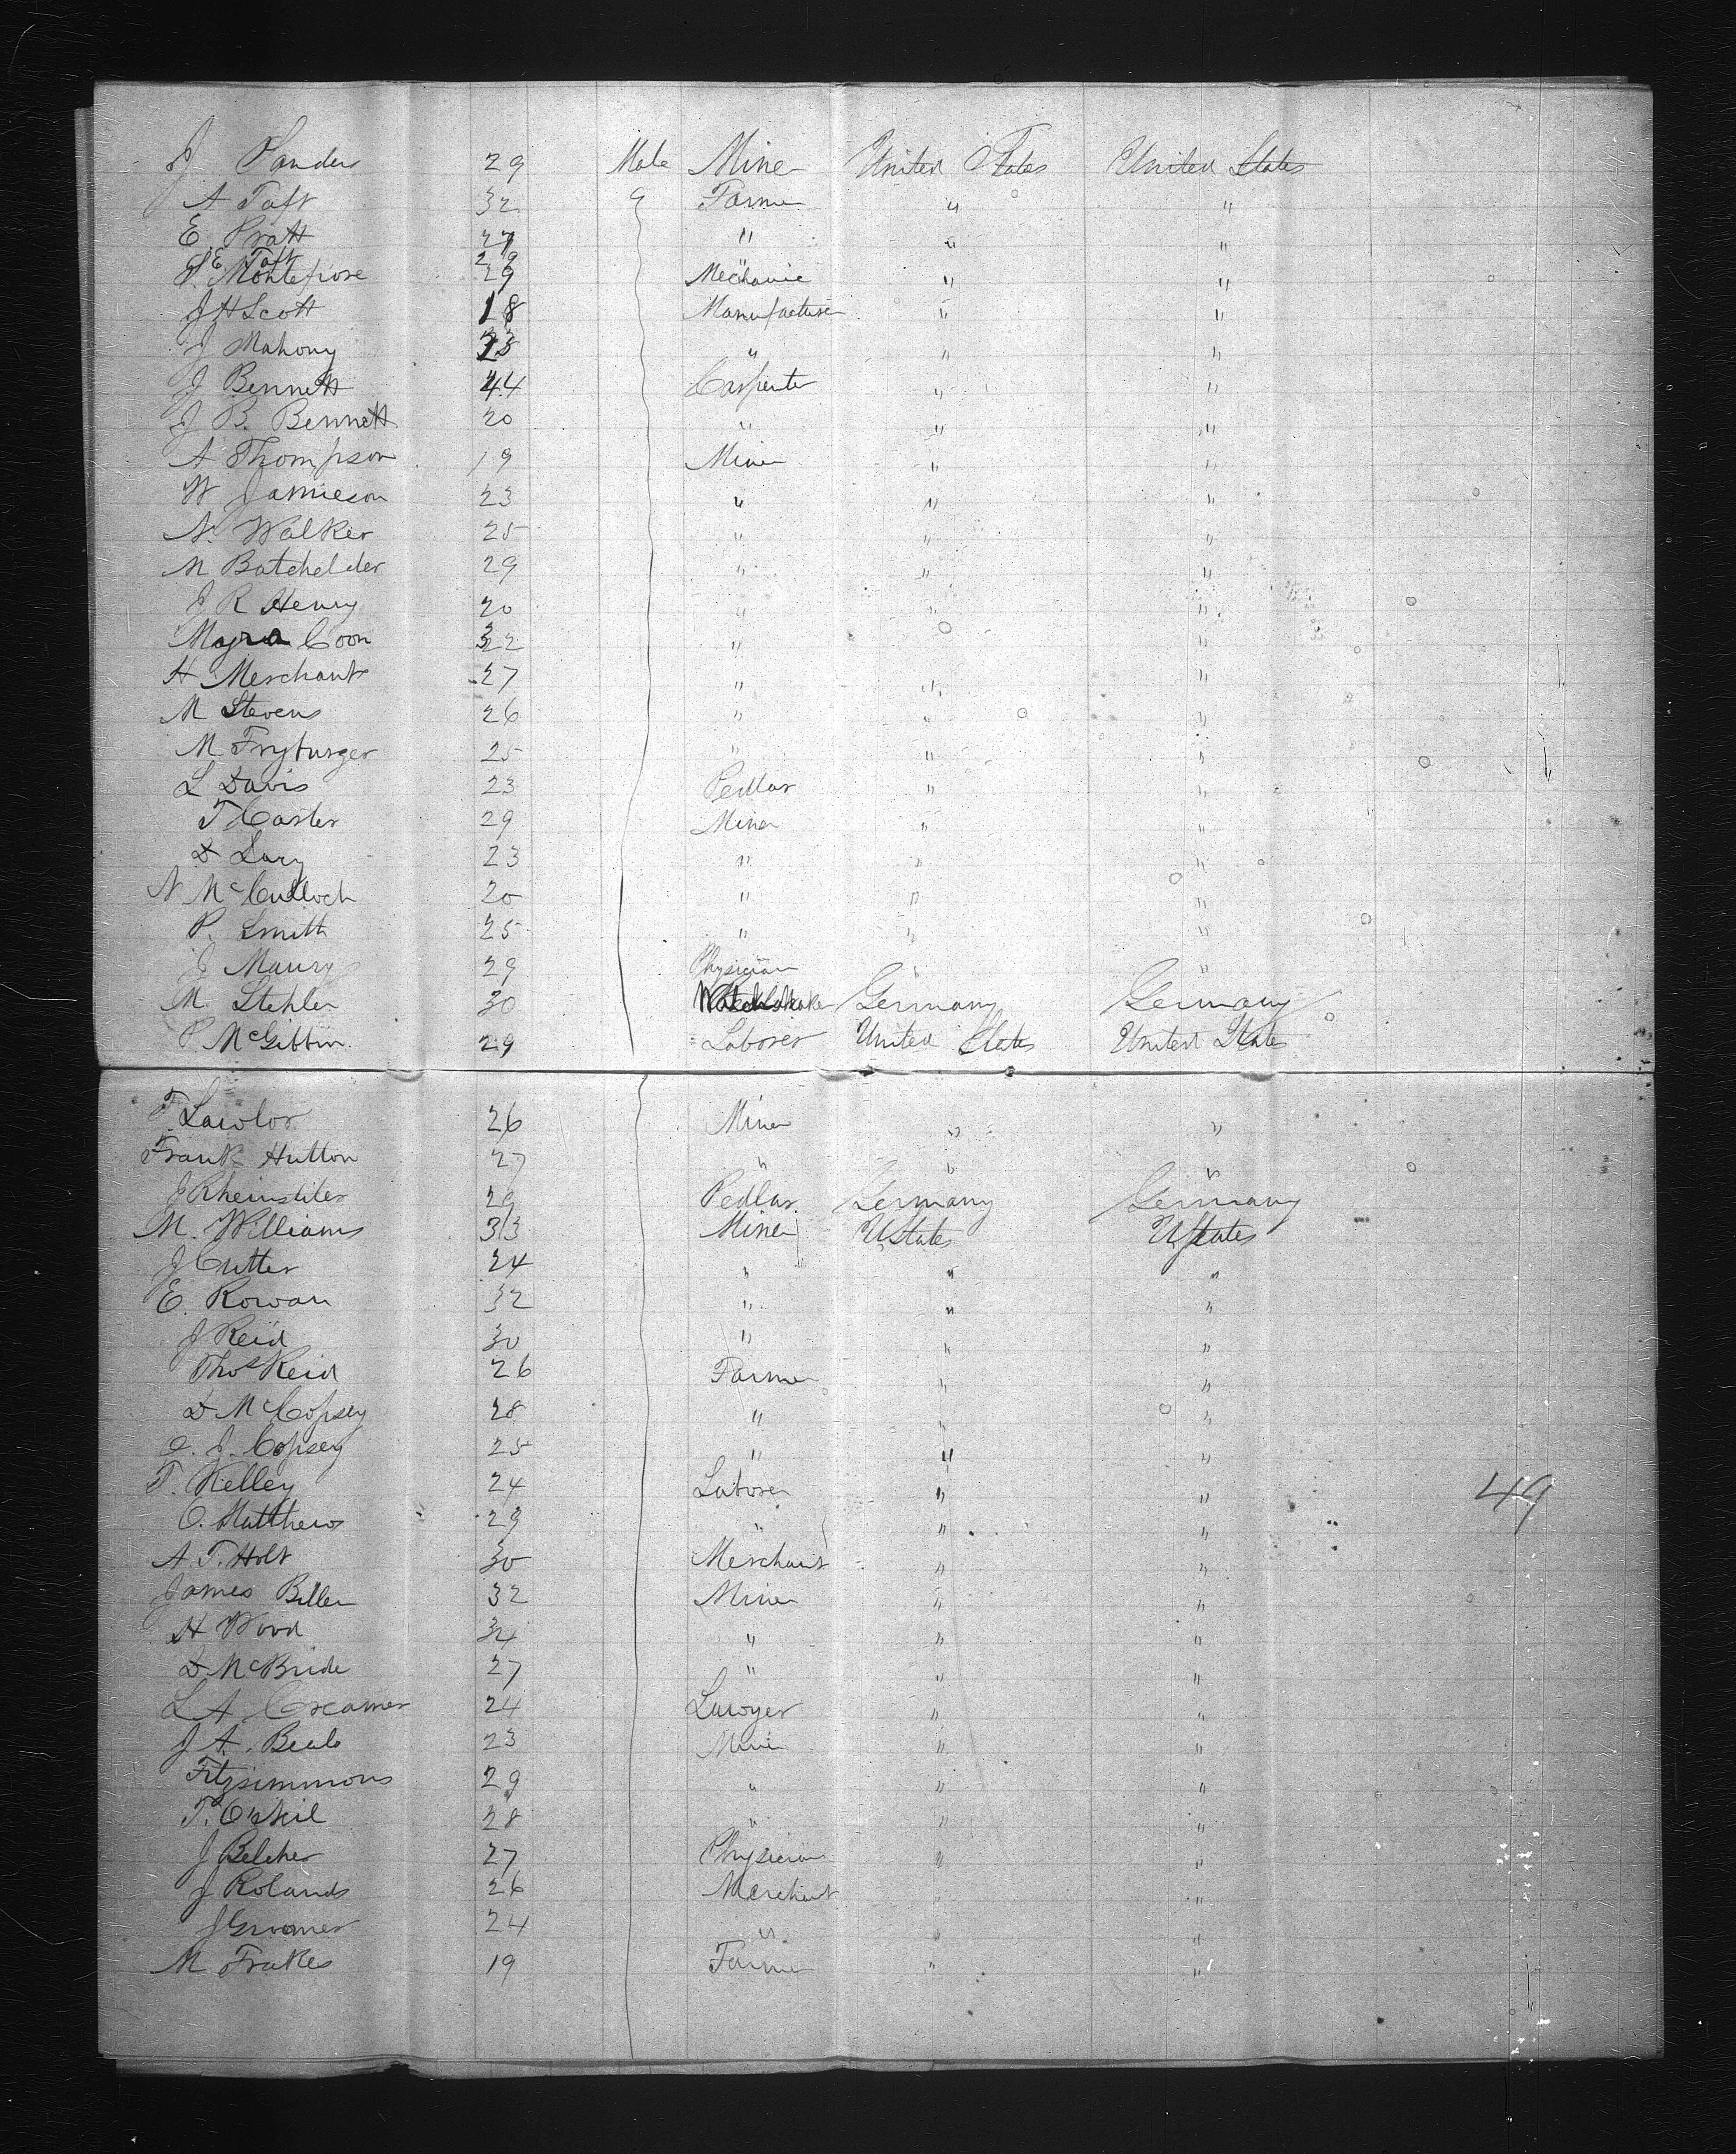 J Sanders 29 Male Miner United States United States
A Taft 32 Farmer " "
E. Pratt 27 " " "
S E Taft 29
S. Montefiore 29 Mechanic " "
J H Scott 18 Manufacturer " "
J Mahony 33 " " "
J Bennett 44 Carpenter " "
J B. Bennett 20 " " "
A Thompson 19 Miner " "
W Jamieson 23 " " "
N. Walker 25 " " "
M Batchelder 29 " " "
J R Henry 20 " " "
Coon 32 " " "
H Merchant 27 " " "
M Stevens 26 " " "
M Fryburger 25 " " "
L Davis 23 Pedlar " "
T Carter 29 Miner " "
D Lary 23 " " "
N McCulloch 20 " " "
P. Smith 25 " " "
J Maury 29 Physician " "
M. Stehler 30 Germany Germany
P. McGibbon. 29 Laborer United States United States
T. Lawlor. 26 Miner " "
Frank Hutton 27 " " "
J Rheinstiter 29 Pedlar. Germany Germany
M. Williams 33 Miner UStates UStates
J Cutter 24 " " "
E. Rowan 32 " " "
J Reid 30 " " "
Thos Reid 26 Farmer " "
D McCopsey 28 " " "
J. Copsey 25 " " "
T. Kelley 24 Laborer " "
O. Matthews 29 " " "
49
A. T. Holt 30 Merchant " "
James Biller 32 Miner " "
H Wood 34 " " "
D. McBride 27 " " "
L A. Creamer 24 Lawyer " "
J A. Beale 23 Miner " "
Fitzsimmons 29 " " "
T. O'Neil 28 " " "
J Belcher 27 Physician " "
J Rolands 26 Merchant " "
J Groomer 24 " " "
M Frakes 19 Farmer " "